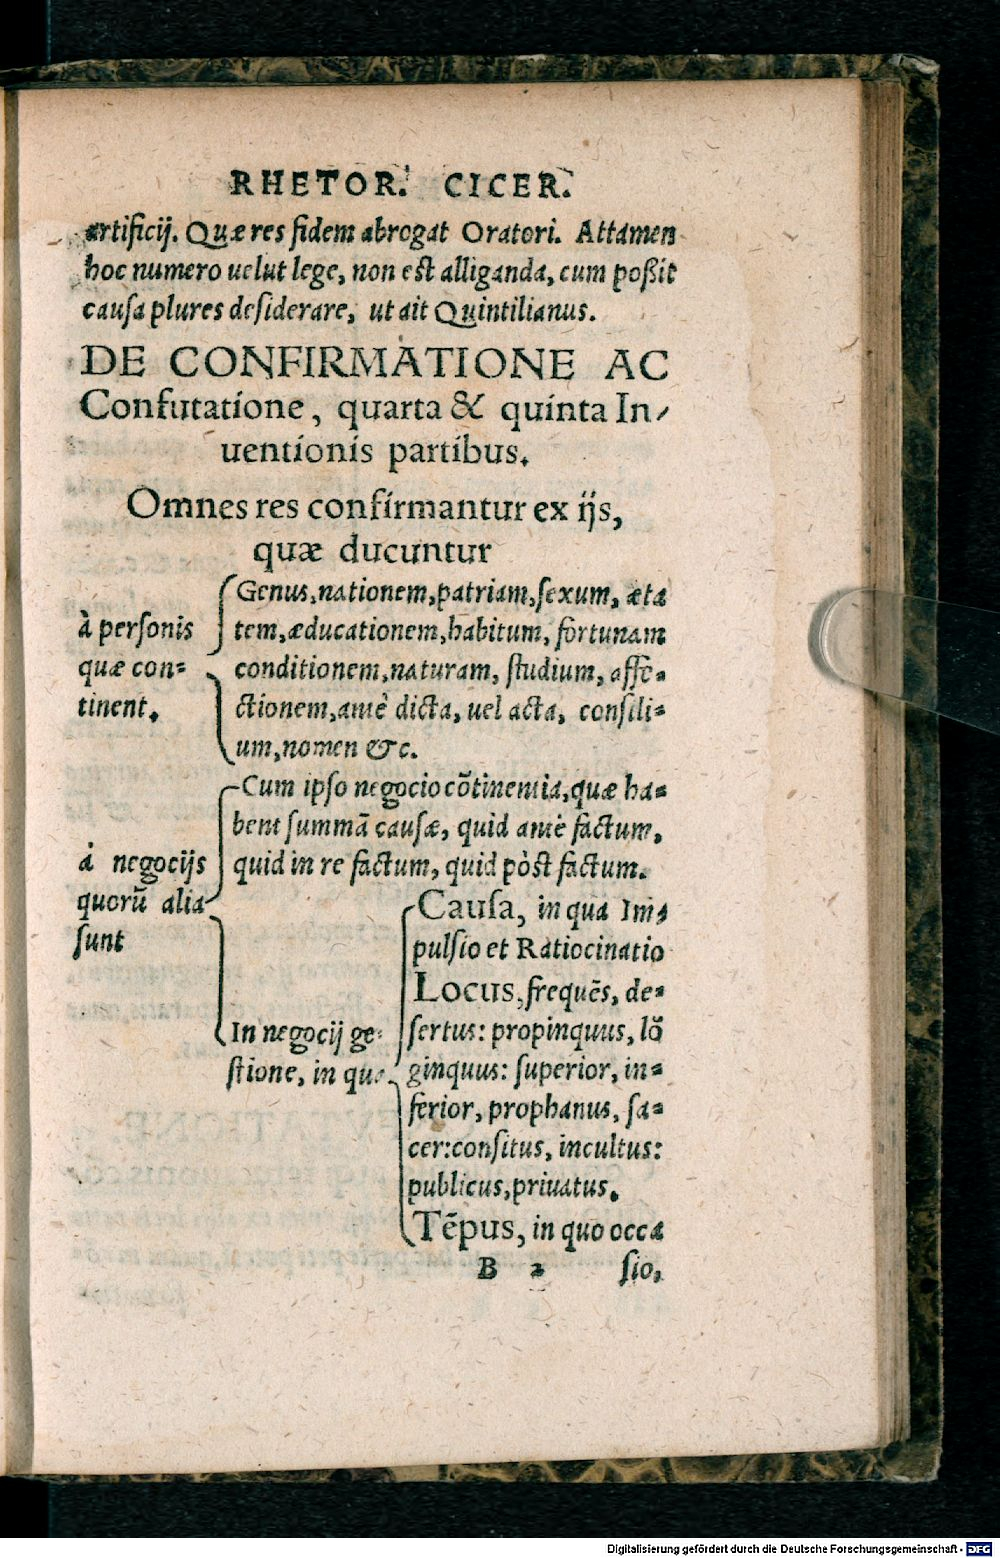 RHETOR. CICER.
artificij. Quæ res fidem abrogat Oratori. Attamen
hoc numero uelut lege, non est alliganda, cum poßit
causa plures desiderare, ut ait Quintilianus.
DE CONFIRMATIONE AC
Confutatione, quarta & quinta In/
uentionis partibus.
Omnes res confirmantur ex ijs,
quæ ducuntur
à personis
quæ con=
tinent.
Genus, nationem, patriam, sexum, æta
tem, æducationem, habitum, fortunam
conditionem, naturam, studium, affe=
ctionem, antè dicta, uel acta, consili=
um, nomen &c.
à negocijs
quorũ alia
sunt
Cum ipso negocio cõtinentia, quæ ha=
bent summã causæ, quid antè factum,
quid in re factum, quid pòst factum.
In negocij ge=
stione, in qua
Causa, in qua Im=
pulsio et Ratiocinatio
Locus, frequẽs, de=
sertus: propinquus, lõ
ginquus: superior, in=
ferior, prophanus, sa=
cer: consitus, incultus:
publicus, priuatus.
Tẽpus, in quo occa
B 2 sio,
Digitalisierung gefördert durch die Deutsche Forschungsgemeinschaft - DFG